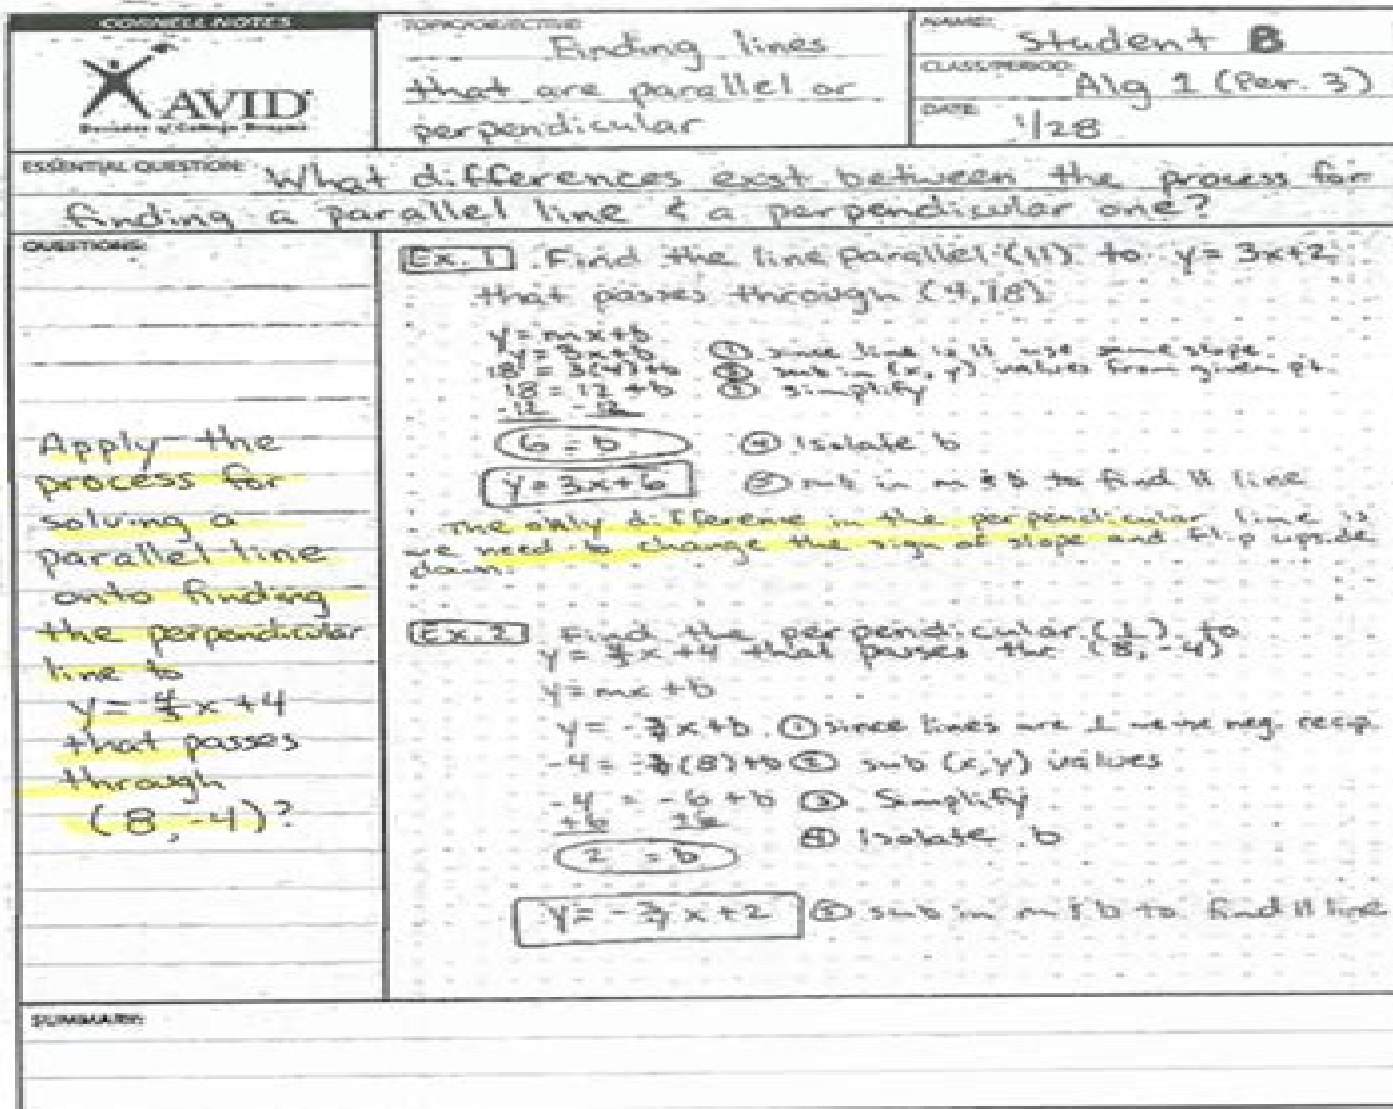 CORNELL NOTES
AVID
Decades of College Dreams
TOPIC/OBJECTIVE:
Finding lines
that are parallel or
perpendicular
NAME: Student B
CLASS/PERIOD: Alg 1 (Per. 3)
DATE: 1/28
ESSENTIAL QUESTION: What differences exist between the process for
finding a parallel line & a perpendicular one?
QUESTIONS:
Apply the
process for
solving a
parallel line
onto finding
the perpendicular
line to
y = 4/3 x + 4
that passes
through
(8, -4)?
Ex. 1 Find the line parallel (11) to y = 3x+2
that passes through (4, 18)
y = mx + b
y = 3x + b ① since line is 11 use same slope
18 = 3(4) + b ② sub in (x, y) values from given pt.
18 = 12 + b ③ simplify
-12 -12
6 = b ④ Isolate b
y = 3x + 6 ⑤ sub in m & b to find 11 line
The only difference in the perpendicular line is
we need to change the sign of slope and flip upside
down.
Ex. 2 Find the perpendicular (⊥) to
y = 4/3 x + 4 that passes thr (8, -4)
y = mx + b
y = -3/4 x + b ① since lines are ⊥ we use neg. recip
-4 = -3/4 (8) + b ② sub (x, y) values
-4 = -6 + b ③ Simplify
+6 +6
④ Isolate b
2 = b
y = -3/4 x + 2 ⑤ sub in m & b to find 11 line
SUMMARY: